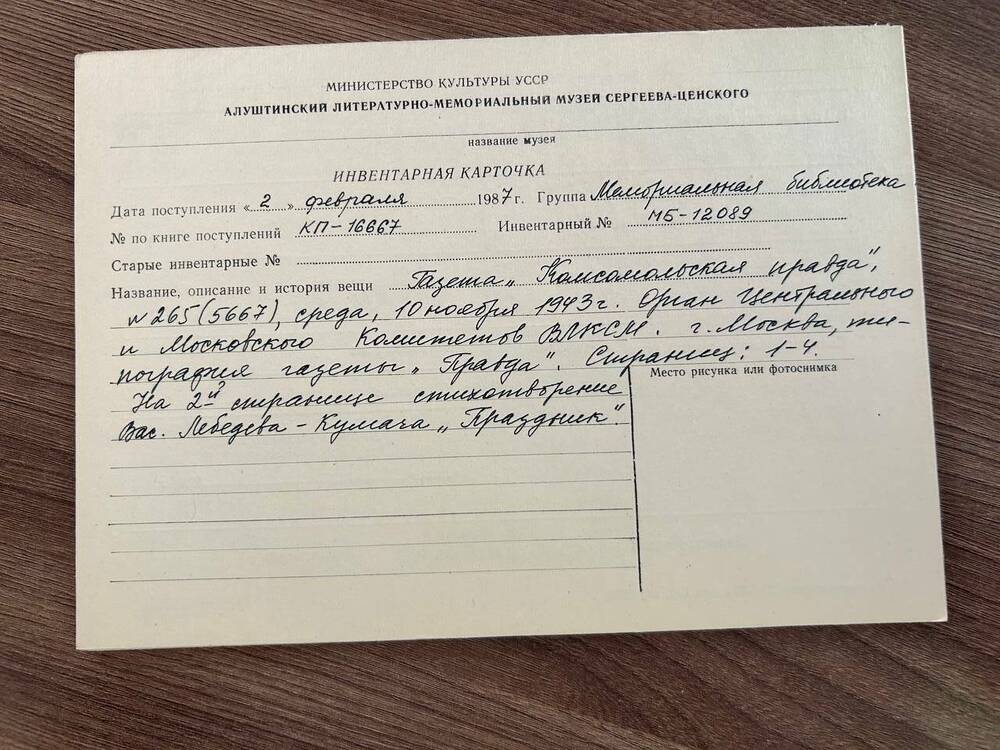 МИНИСТЕРСТВО КУЛЬТУРЫ УССР
АЛУШТИНСКИЙ ЛИТЕРАТУРНО-МЕМОРИАЛЬНЫЙ МУЗЕЙ СЕРГЕЕВА-ЦЕНСКОГО
название музея
ИНВЕНТАРНАЯ КАРТОЧКА
Дата поступления «2» февраля 1987 г. Группа Мемориальная библиотека
№ по книге поступлений КП-16667 Инвентарный № МБ-12089
Старые инвентарные №
Название, описание и история вещи Газета „Комсомольская правда",
№ 265 (5667), среда, 10 ноября 1943 г. Орган Центрального
и Московского Комитетов ВЛКСМ. г. Москва, ти-
пография газеты „Правда". Страниц: 1-4.
Место рисунка или фотоснимка
На 2й странице стихотворение
Вас. Лебедева-Кумача „Праздник".